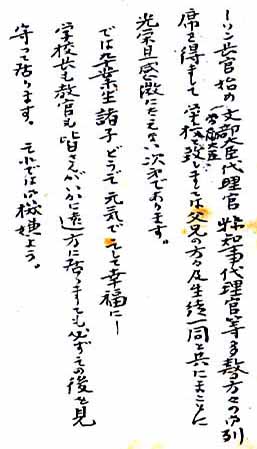 ーソン長官始め文部大臣代理官 県知事代理官等多数方々の御列
席を得まして 学校と致しましては父兄の方々及生徒一同と共にまことに
光栄且感激にたえない次第であります。
では卒業生諸子 どうぞ元気で そして幸福に!
学校長も教官も皆さんがいかに遠方に居りましても、必ずその後を見
守って居ります。 それでは御機嫌よう。